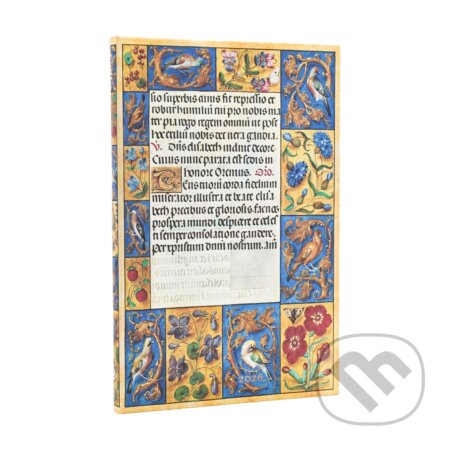 sio superbis auus fit repressio et
robur humiliū tu pro nobis ma
ter pia rogo regem omniū ut post
hoc exiliū nobis det vera gaudia.
elisabeth decore
Cuius nunc parata est sedis in
honore Oremus. Oro.
corda fidelium
miserator illustra et beate elisa
beth precibus et gloriosis fac nos
prospera mundi despicere et celes
ti semper consolatione gaudere.
Per xpristum dnm nostrum. am
2026